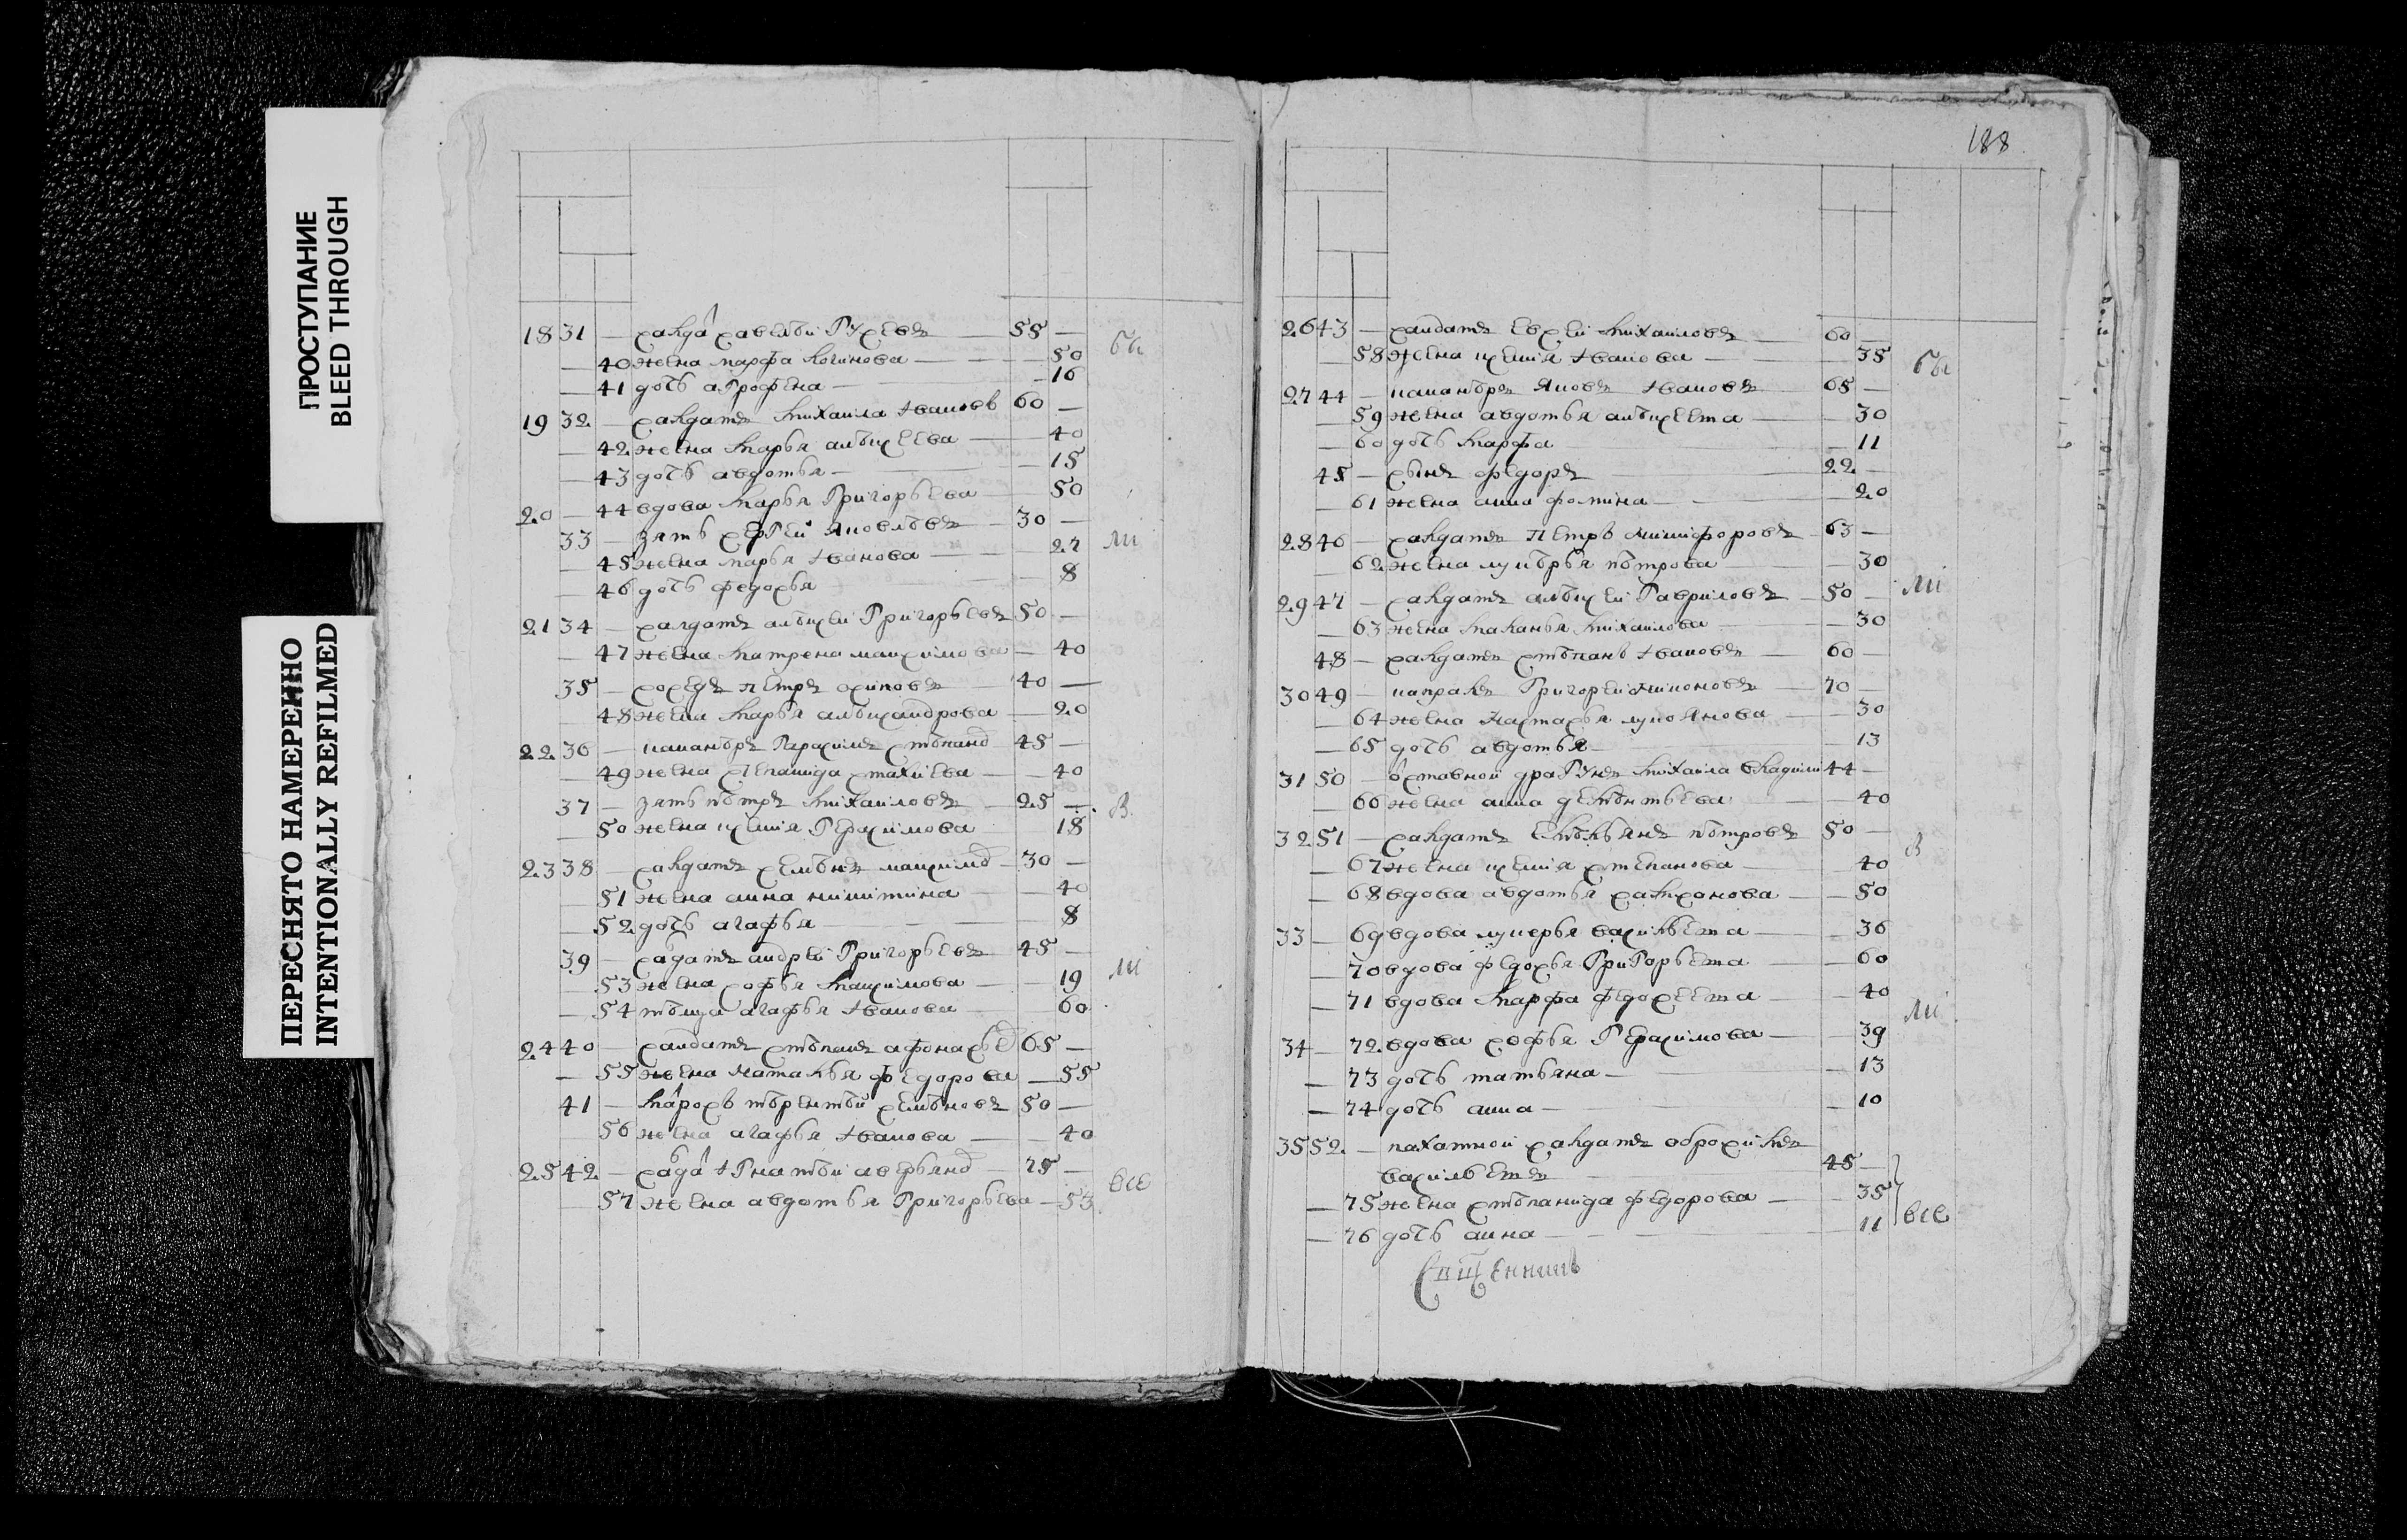 ПРОСТУПАНИЕ
BLEED THROUGH
ПЕРЕСНЯТО НАМЕРЕННО
INTENTIONALLY REFILMED
18 31 — салда савелѣй Гусевъ — 55 —
— 40 жена марфа — 50
— 41 дочь аГрофена — 16
бы
19 32 — салдатъ михаила Iвановъ 60 —
— 42 жена марья алѣксеева — 40
— 43 дочь авдотья — 15
20 — 44 вдова марья Григорьева — 50
33 — зять серГей яковлѣвъ — 30 —
— 45 жена марья Iванова — 27
ли
— 46 дочь федосья — 8
21 34 — салдатъ алѣксей Григорьевъ 50 —
— 47 жена матрена максимова — 40
35 — соседъ петръ осиповъ — 40 —
— 48 жена марья алѣксандрова — 20
22 36 — кананѣръ Гарасимъ стѣпано 45 —
— 49 жена степанида — 40
37 — зять пѣтръ михаиловъ — 25 —
в
— 50 жена ксения Герасимова — 18
23 38 — салдатъ семѣнъ максимо — 30 —
— 51 жена анна никитина — 40
— 52 дочь агафья — 8
39 — садатъ андрей Григорьевъ 45 —
— 53 жена софья максимова — 19
ли
— 54 тѣща агафья Iванова — 60
24 40 — салдатъ стѣпанъ афонасье 65 —
— 55 жена наталья федорова — 55
41 — терентѣй семѣновъ 50 —
— 56 жена агафья Iванова — 40
25 42 — сада IГнатѣй аверьяно — 75 —
все
— 57 жена авдотья Григорьева — 53
188
26 43 — салдатъ евсей михаиловъ — 60 —
— 58 жена ксения Iванова — 35
бы
27 44 — кананѣръ яковъ Iвановъ 65 —
— 59 жена авдотья алѣксеева — 30
— 60 дочь марфа — 11
45 — сынъ федоръ — 22 —
— 61 жена анна фомина — 20
28 46 — салдатъ петръ никифоровъ — 63 —
— 62 жена лукѣрья пѣтрова — 30
29 47 — салдатъ алѣксей Гавриловъ — 50 —
ли
— 63 жена маланья михаилова — 30
48 — салдатъ стѣпанъ Iвановъ — 60 —
30 49 — капралъ Григорей — 70 —
— 64 жена настасья лукоянова — 30
— 65 дочь авдотья — 13
31 50 — отставной драГунъ михаила владими 44 —
— 66 жена анна — 40
32 51 — салдатъ емѣльянъ пѣтровъ 50 —
в
— 67 жена ксения степанова — 40
— 68 вдова авдотья самсонова — 50
33 — 69 вдова лукерья васильева — 36
— 70 вдова федосья ГриГорьева — 60
— 71 вдова марфа федосеева — 40
ли
34 — 72 вдова софья Герасимова — 39
— 73 дочь татьяна — 13
— 74 дочь анна — 10
35 52 — пахатной салдатъ абросимъ
васильевъ — 45 —
— 75 жена стѣпанида федорова — 35
все
— 76 дочь анна — 11